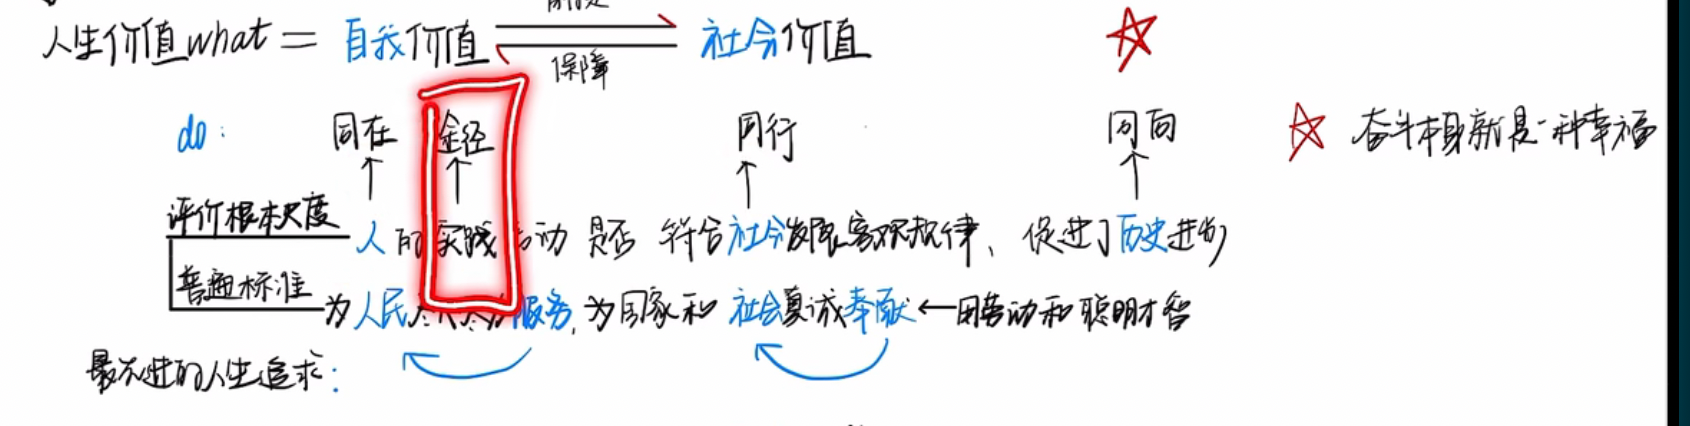 人生价值what = 自我价值 社会价值
保障
do: 同在 途径 同行 同向 奋斗本身就是一种幸福
评价根本尺度 人的实践活动 是否 符合社会发展客观规律、促进了历史进步
普遍标准 为人民尽心尽力服务,为国家和 社会真诚奉献 ← 用劳动和聪明才智
最先进的人生追求: